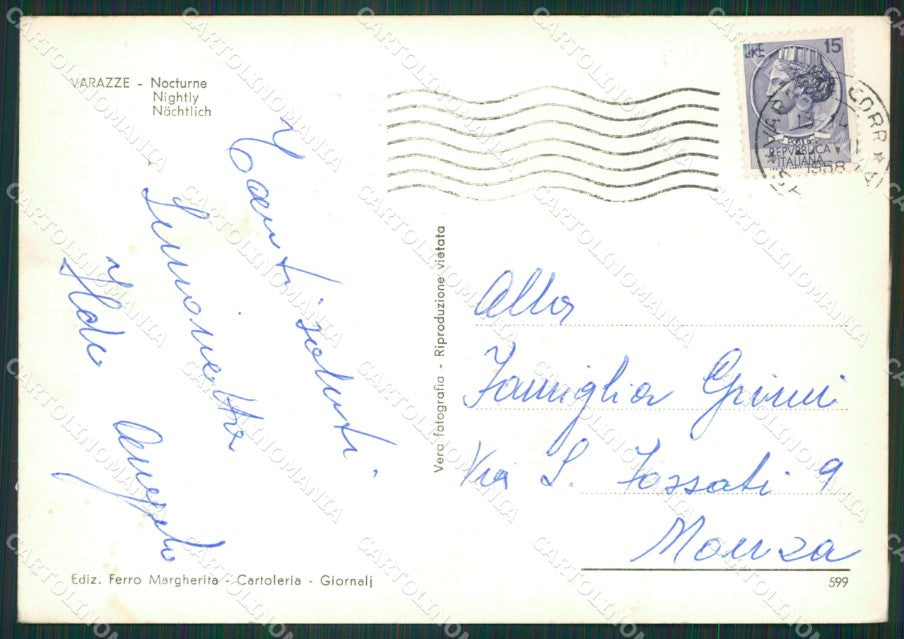 VARAZZE - Nocturne
Nightly
Nächtlich
LIRE 15
REPVBBLICA
ITALIANA
CORR
1958
Tanti saluti
Simonetta
Aldo Angelo
Vera fotografia - Riproduzione vietata
Alla
Famiglia
Via S. Fossati 9
Monza
Ediz. Ferro Margherita - Cartoleria - Giornali
599
CARTOLINOMANIA